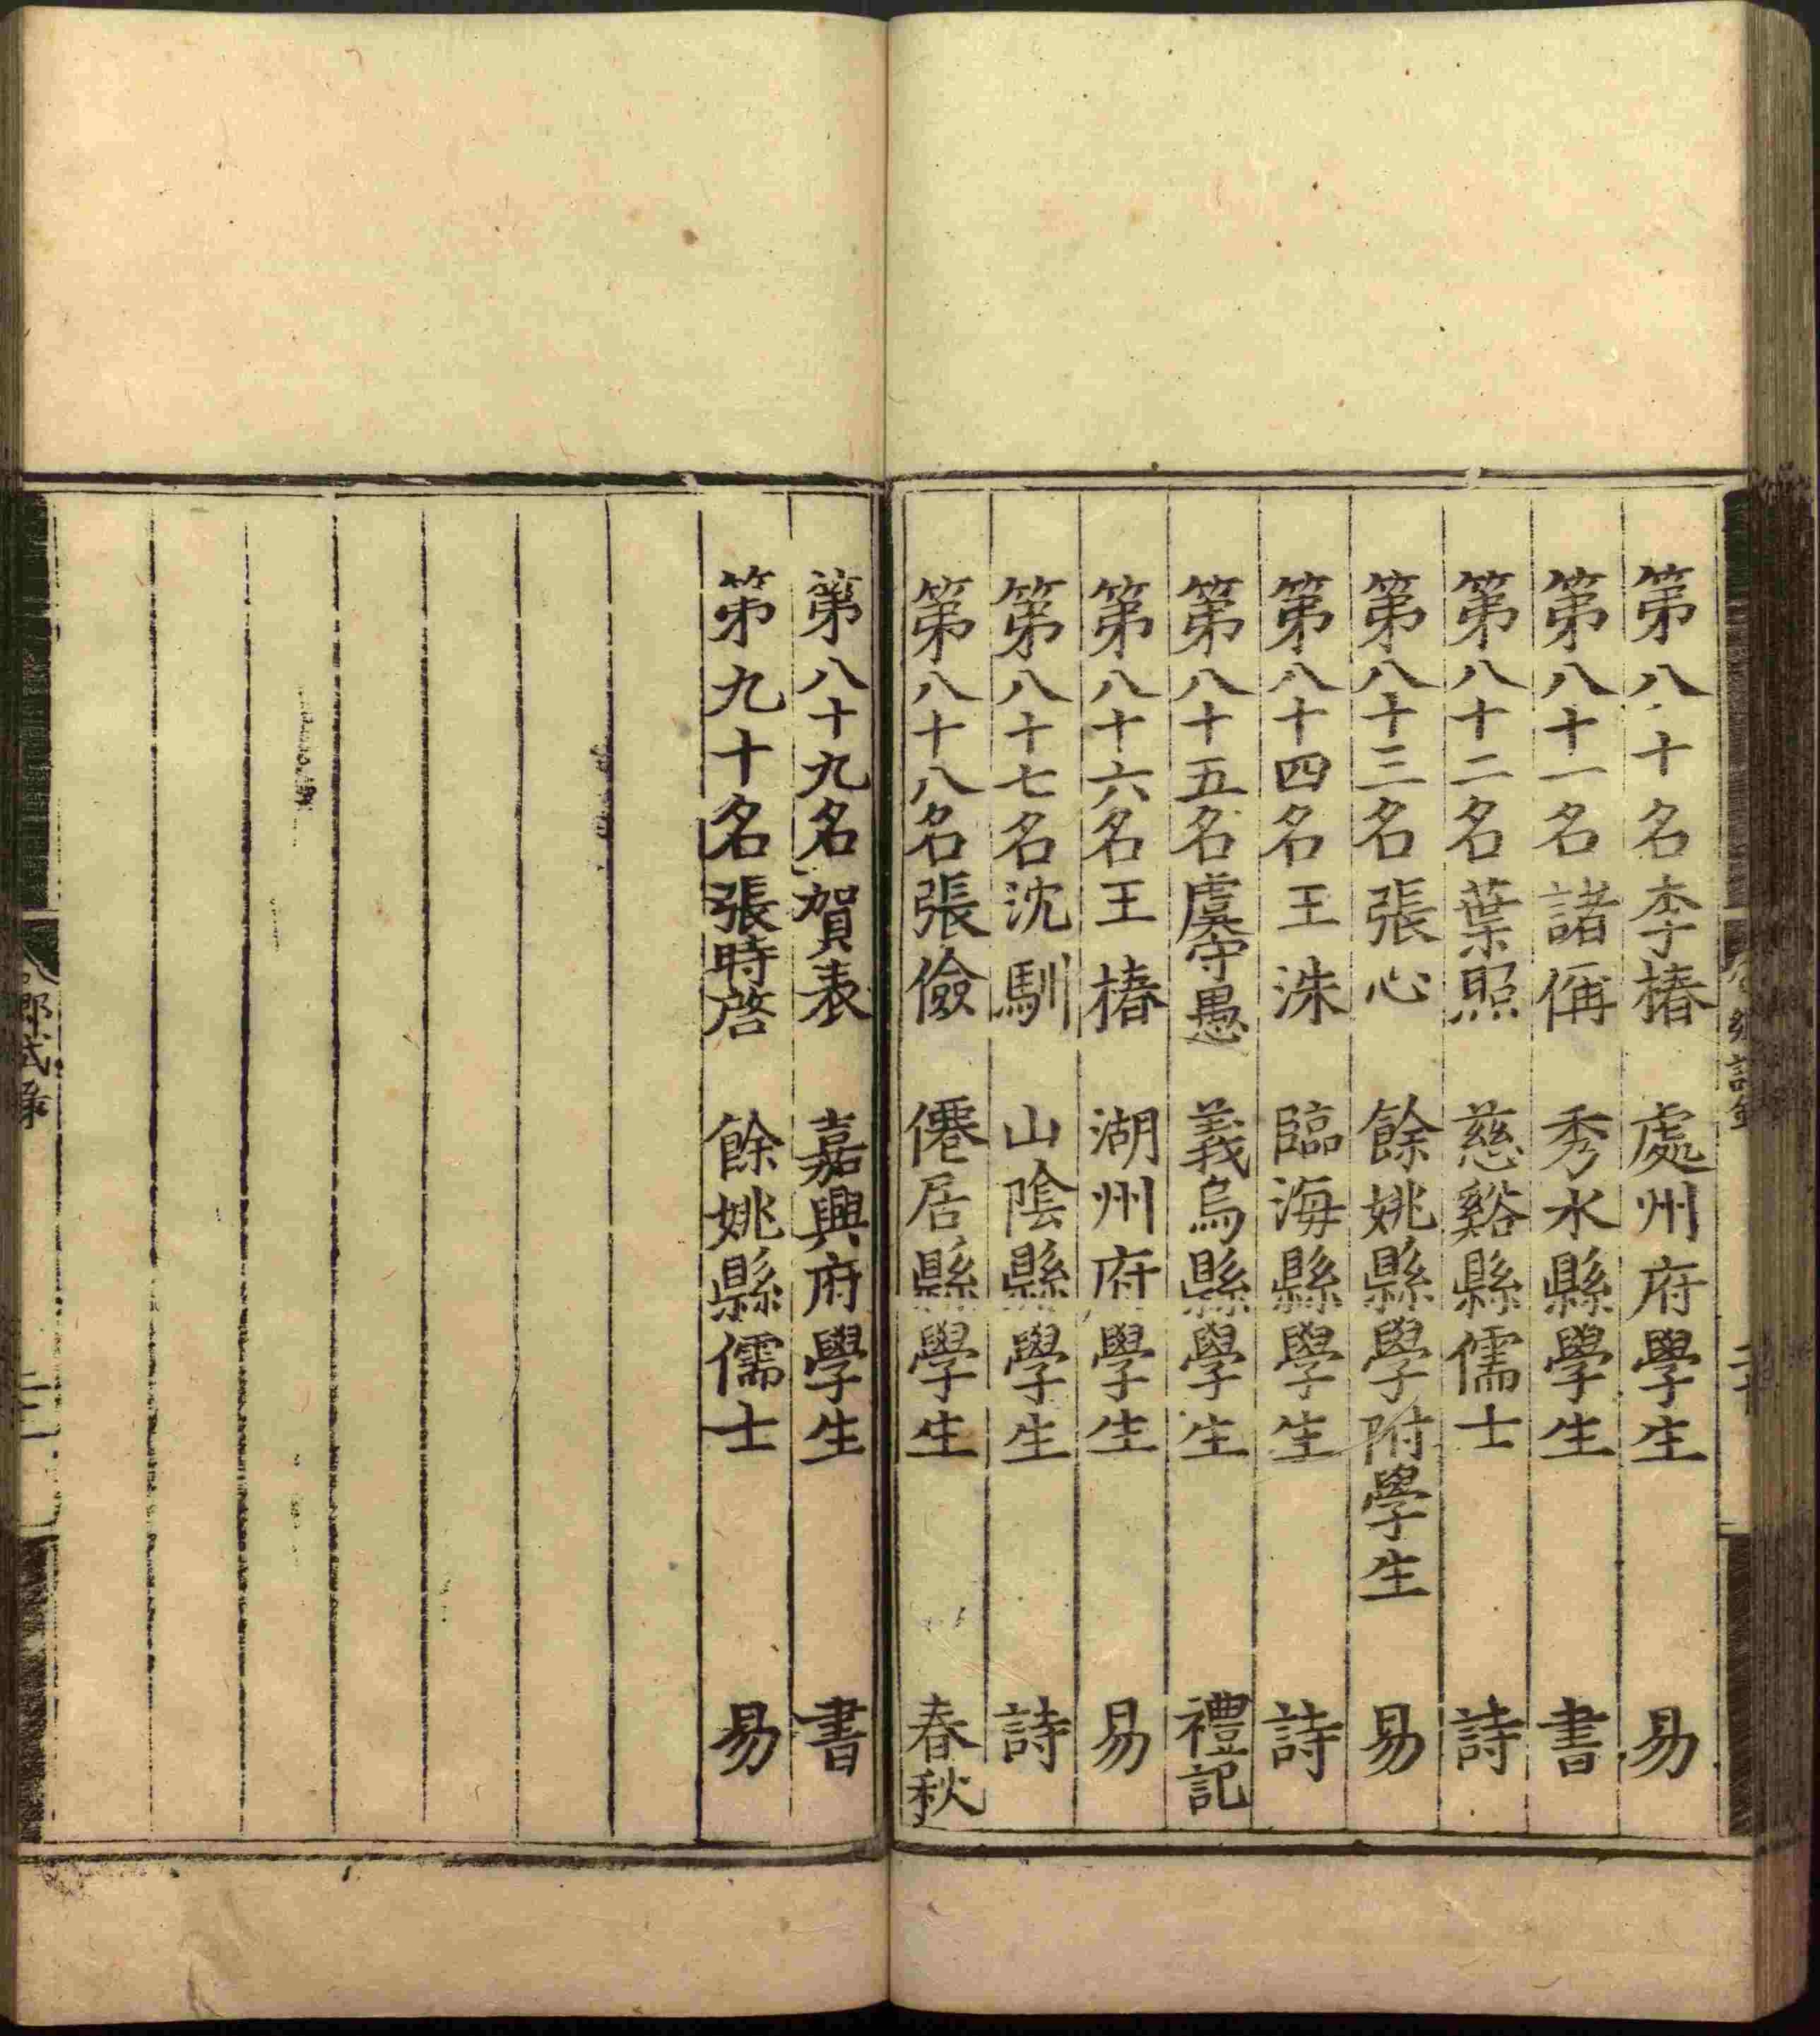 第八十名李椿 處州府學生 易
第八十一名諸偁 秀水縣學生 書
第八十二名葉照 慈谿縣儒士 詩
第八十三名張心 餘姚縣學附學生 易
第八十四名王洙 臨海縣學生 詩
第八十五名虞守愚 義烏縣學生 禮記
第八十六名王椿 湖州府學生 易
第八十七名沈馴 山陰縣學生 詩
第八十八名張儉 僊居縣學生 春秋
第八十九名賀表 嘉興府學生 書
第九十名張時啓 餘姚縣儒士 易